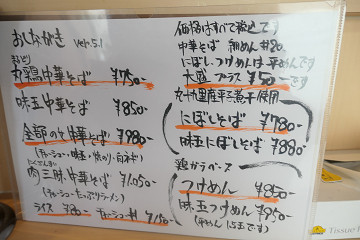 おしながき ver.5.1
鶏中華そば ¥750-
味玉中華そば ¥850-
全部のせ中華そば ¥980-
(チャーシュー・味玉・のり・
肉三昧中華そば ¥1,050-
(チャーシューたっぷりラーメン)
ライス チャーシュー ¥150-
価格はすべて税込です
中華そば 細めん
にぼし・つけめんは平めんです
大盛 プラス ¥50-です
九十九里産煮干使用
にぼしそば ¥780-
味玉にぼしそば ¥880-
鶏ガラベース
つけめん ¥850-
味玉つけめん ¥950-
(平めん 1.5玉です)
Tissue